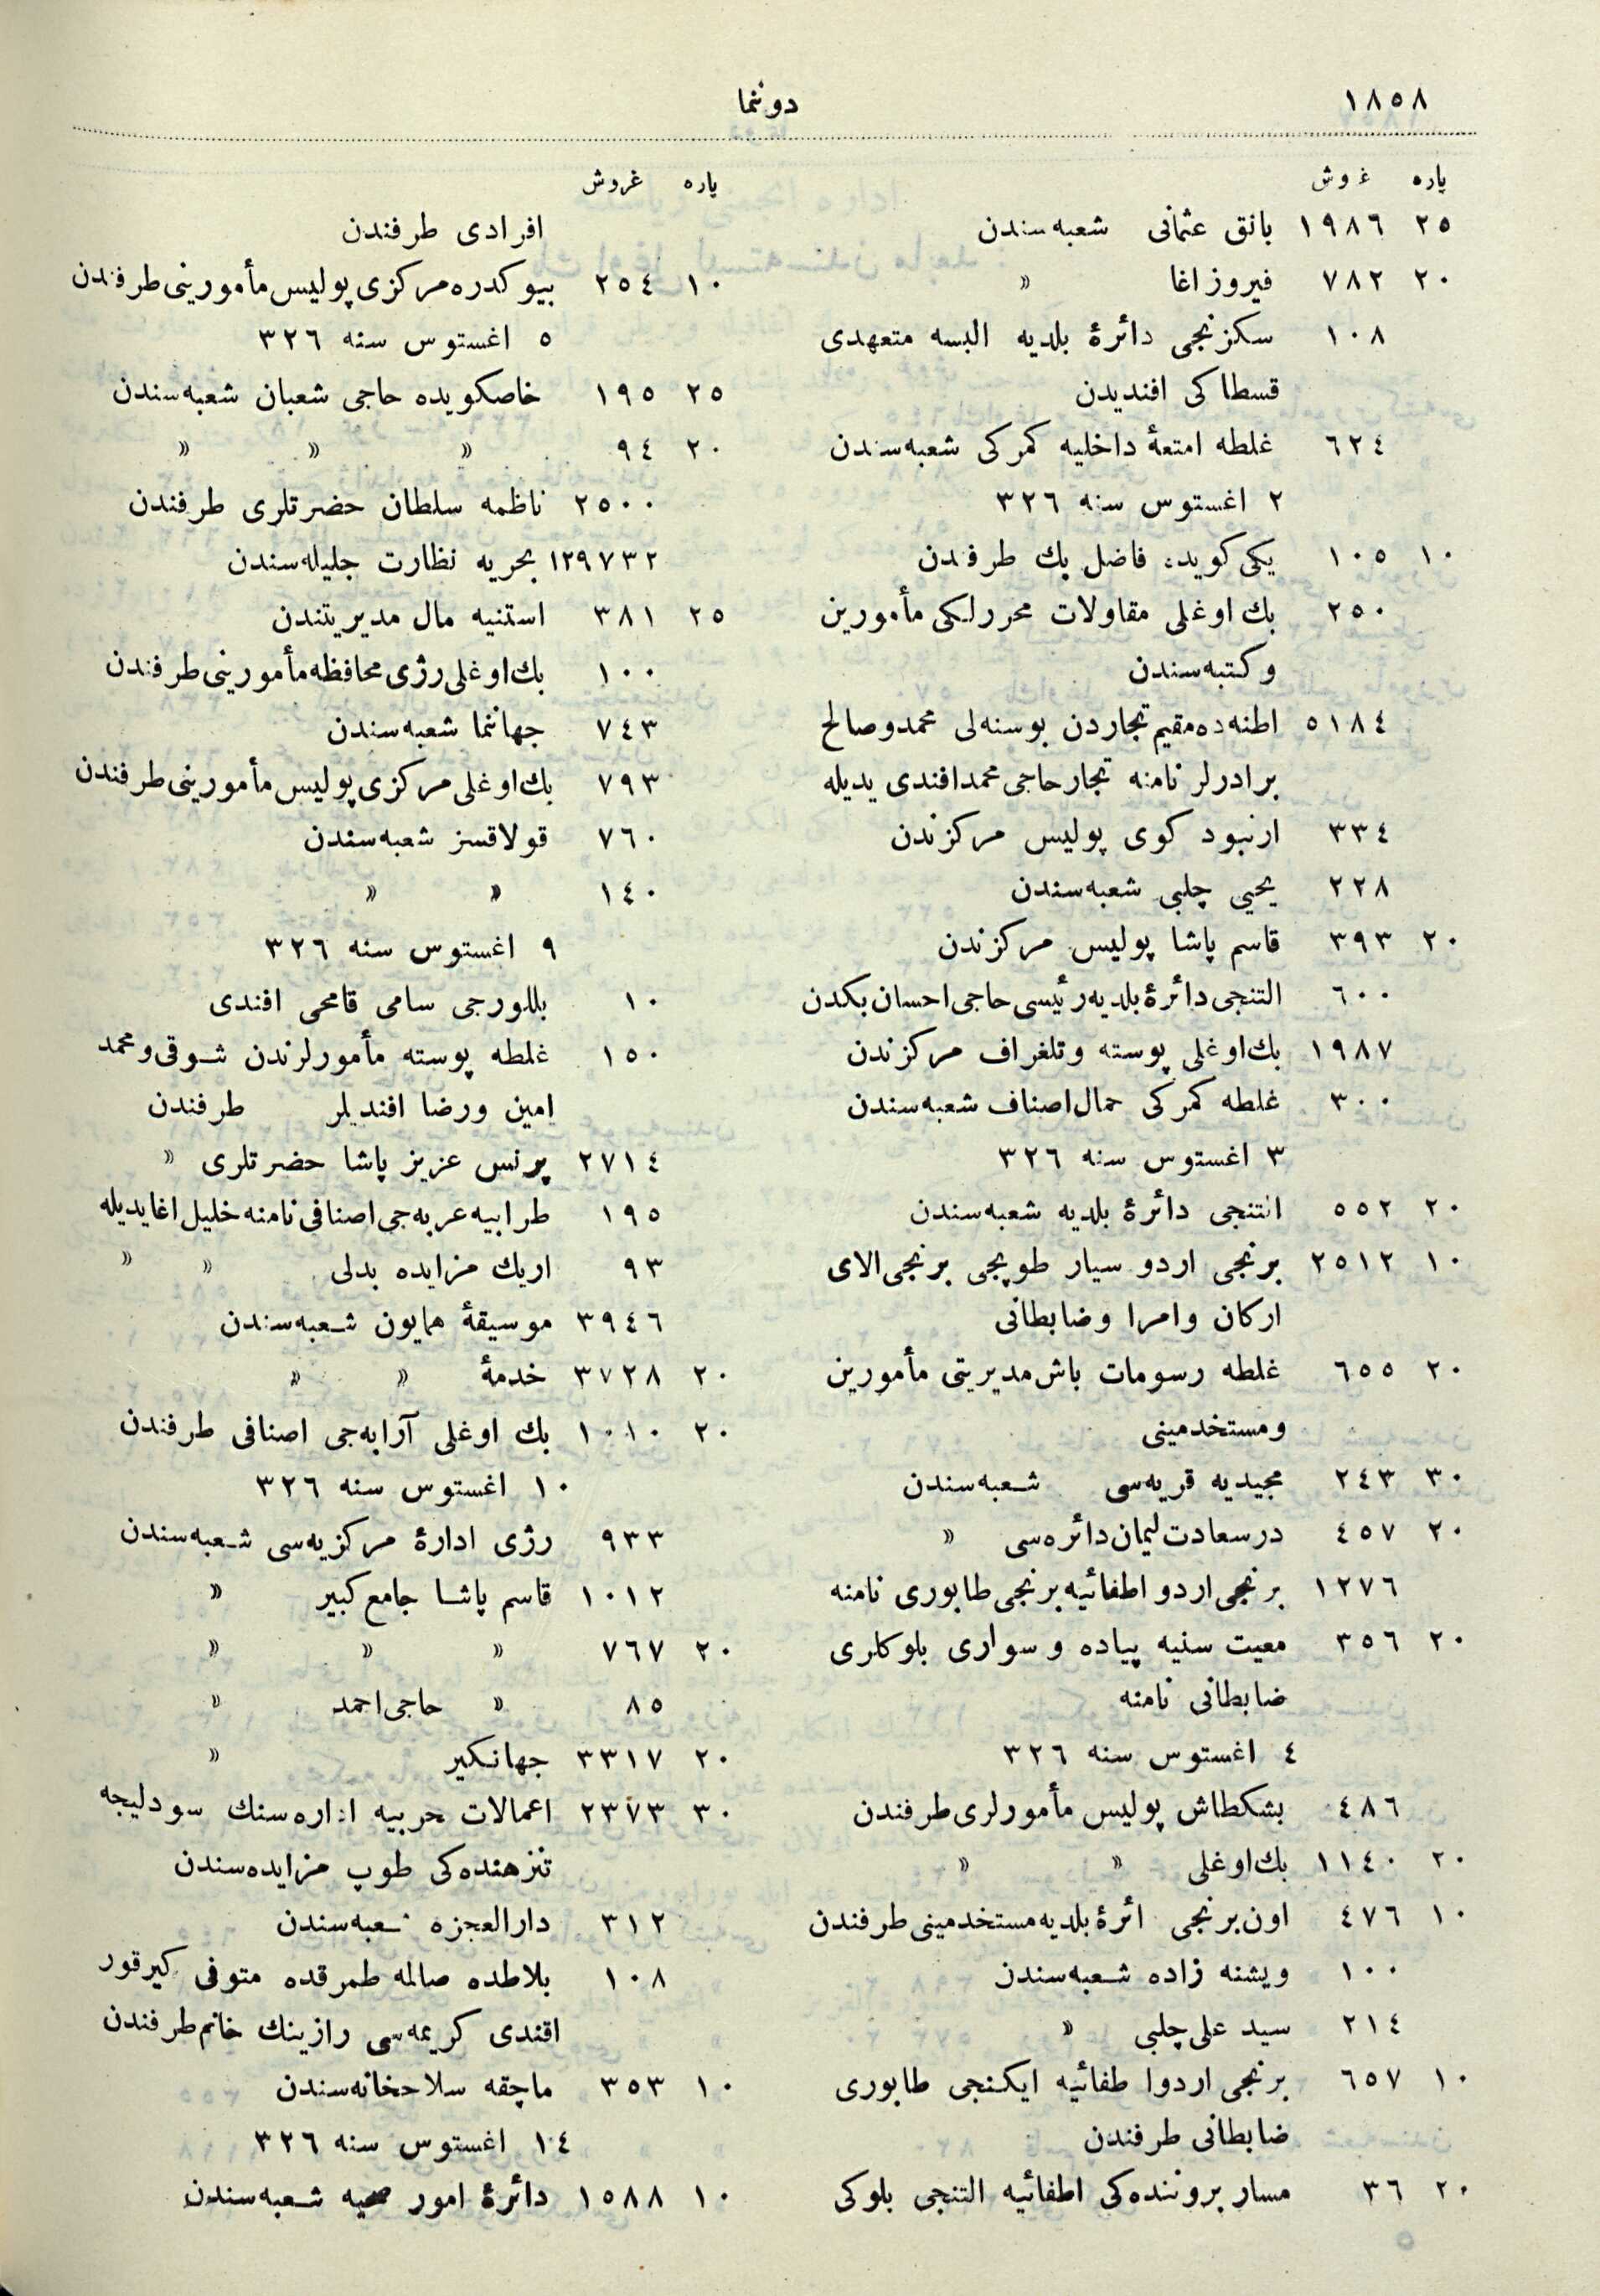 ١٨٥٨
دوننما
پاره غروش
٢٥ ١٩٨٦ بانق عثمانی شعبه‌سندن
٢٠ ٧٨٢ فیروز اغا »
١٠٨ سکزنجی دائرهٔ بلدیه البسه متعهدی
قسطاکی افندیدن
٦٢٤ غلطه امتعهٔ داخلیه کمرکی شعبه‌سندن
٢ اغستوس سنه ٣٢٦
١٠ ١٠٥ یکی کویده فاضل بك طرفندن
٢٥٠ بك اوغلی مقاولات محررلکی مأمورین
وکتبه‌سندن
٥١٨٤ اطنه‌ده مقیم تجاردن بوسنه‌لی محمد وصالح
برادرلر نامنه تجار حاجی محمد افندی یدیله
٣٣٤ ارنبود کوی پولیس مرکزندن
٢٢٨ یحیی چلبی شعبه‌سندن
٢٠ ٣٩٣ قاسم پاشا پولیس مرکزندن
٦٠٠ التنجی دائرهٔ بلدیه رئیسی حاجی احسان بکدن
١٩٨٧ بك اوغلی پوسته وتلغراف مرکزندن
٣٠٠ غلطه کمرکی حمال اصناف شعبه‌سندن
٣ اغستوس سنه ٣٢٦
٢٠ ٥٥٢ التنجی دائرهٔ بلدیه شعبه‌سندن
١٠ ٢٥١٢ برنجی اردو سیار طوپجی برنجی الای
ارکان وامرا وضابطانی
٢٠ ٦٥٥ غلطه رسومات باش مدیریتی مأمورین
ومستخدمینی
٣٠ ٢٤٣ مجیدیه قریه‌سی شعبه‌سندن
٢٠ ٤٥٧ درسعادت لیمان دائره‌سی »
١٢٧٦ برنجی اردو اطفائیه برنجی طابوری نامنه
٢٠ ٣٥٦ معیت سنیه پیاده و سواری بلوکلری
ضابطانی نامنه
٤ اغستوس سنه ٣٢٦
٤٨٦ بشکطاش پولیس مأمورلری طرفندن
٢٠ ١١٤٠ بك اوغلی » »
١٠ ٤٧٦ اون برنجی دائرهٔ بلدیه مستخدمینی طرفندن
١٠٠ ویشنه زاده شعبه‌سندن
٢١٤ سید علی چلبی »
١٠ ٦٥٧ برنجی اردوا طفائیه ایکنجی طابوری
ضابطانی طرفندن
٢٠ ٣٦ مسار بروننده‌کی اطفائیه التنجی بلوکی
پاره غروش
افرادی طرفندن
١٠ ٢٥٤ بیوکدره مرکزی پولیس مأمورینی طرفندن
٥ اغستوس سنه ٣٢٦
٢٥ ١٩٥ خاصکویده حاجی شعبان شعبه‌سندن
٢٠ ٩٤ » » »
٢٥٠٠ ناظمه سلطان حضرتلری طرفندن
١٢٩٧٣٢ بحریه نظارت جلیله‌سندن
٢٥ ٣٨١ استنیه مال مدیریتندن
١٠٠ بك اوغلی رژی محافظه مأمورینی طرفندن
٧٤٣ جهاننما شعبه‌سندن
٧٩٣ بك اوغلی مرکزی پولیس مأمورینی طرفندن
٧٦٠ قولاقسز شعبه‌سندن
١٤٠ » »
٩ اغستوس سنه ٣٢٦
١٠ بللورجی سامی قامحی افندی
١٥٠ غلطه پوسته مأمورلرندن شوقی ومحمد
امین ورضا افندیلر طرفندن
٢٧١٤ پرنس عزیز پاشا حضرتلری »
١٩٥ طرابیه عربه‌جی اصنافی نامنه خلیل اغا یدیله
٩٣ اریك مزایده بدلی » »
٣٩٤٦ موسیقهٔ همایون شعبه‌سندن
٢٠ ٣٧٢٨ خدمهٔ » »
٢٠ ١٠١٠ بك اوغلی آرابه‌جی اصنافی طرفندن
١٠ اغستوس سنه ٣٢٦
٩٣٣ رژی ادارهٔ مرکزیه‌سی شعبه‌سندن
١٠١٢ قاسم پاشا جامع کبیر »
٢٠ ٧٦٧ » » »
٨٥ » حاجی احمد »
٢٠ ٣٣١٧ جهانکیر »
٣٠ ٢٣٧٣ اعمالات حربیه اداره‌سنك سودلیجه
تنزهنده‌کی طوپ مزایده‌سندن
٣١٢ دارالعجزه شعبه‌سندن
١٠٨ بلاطده صالمه طمرقده متوفی کیرقور
افندی کریمه‌سی رازینك خانم طرفندن
١٠ ٣٥٣ ماچقه سلاحخانه‌سندن
١٤ اغستوس سنه ٣٢٦
١٠ ١٥٨٨ دائرهٔ امور صحیه شعبه‌سندن